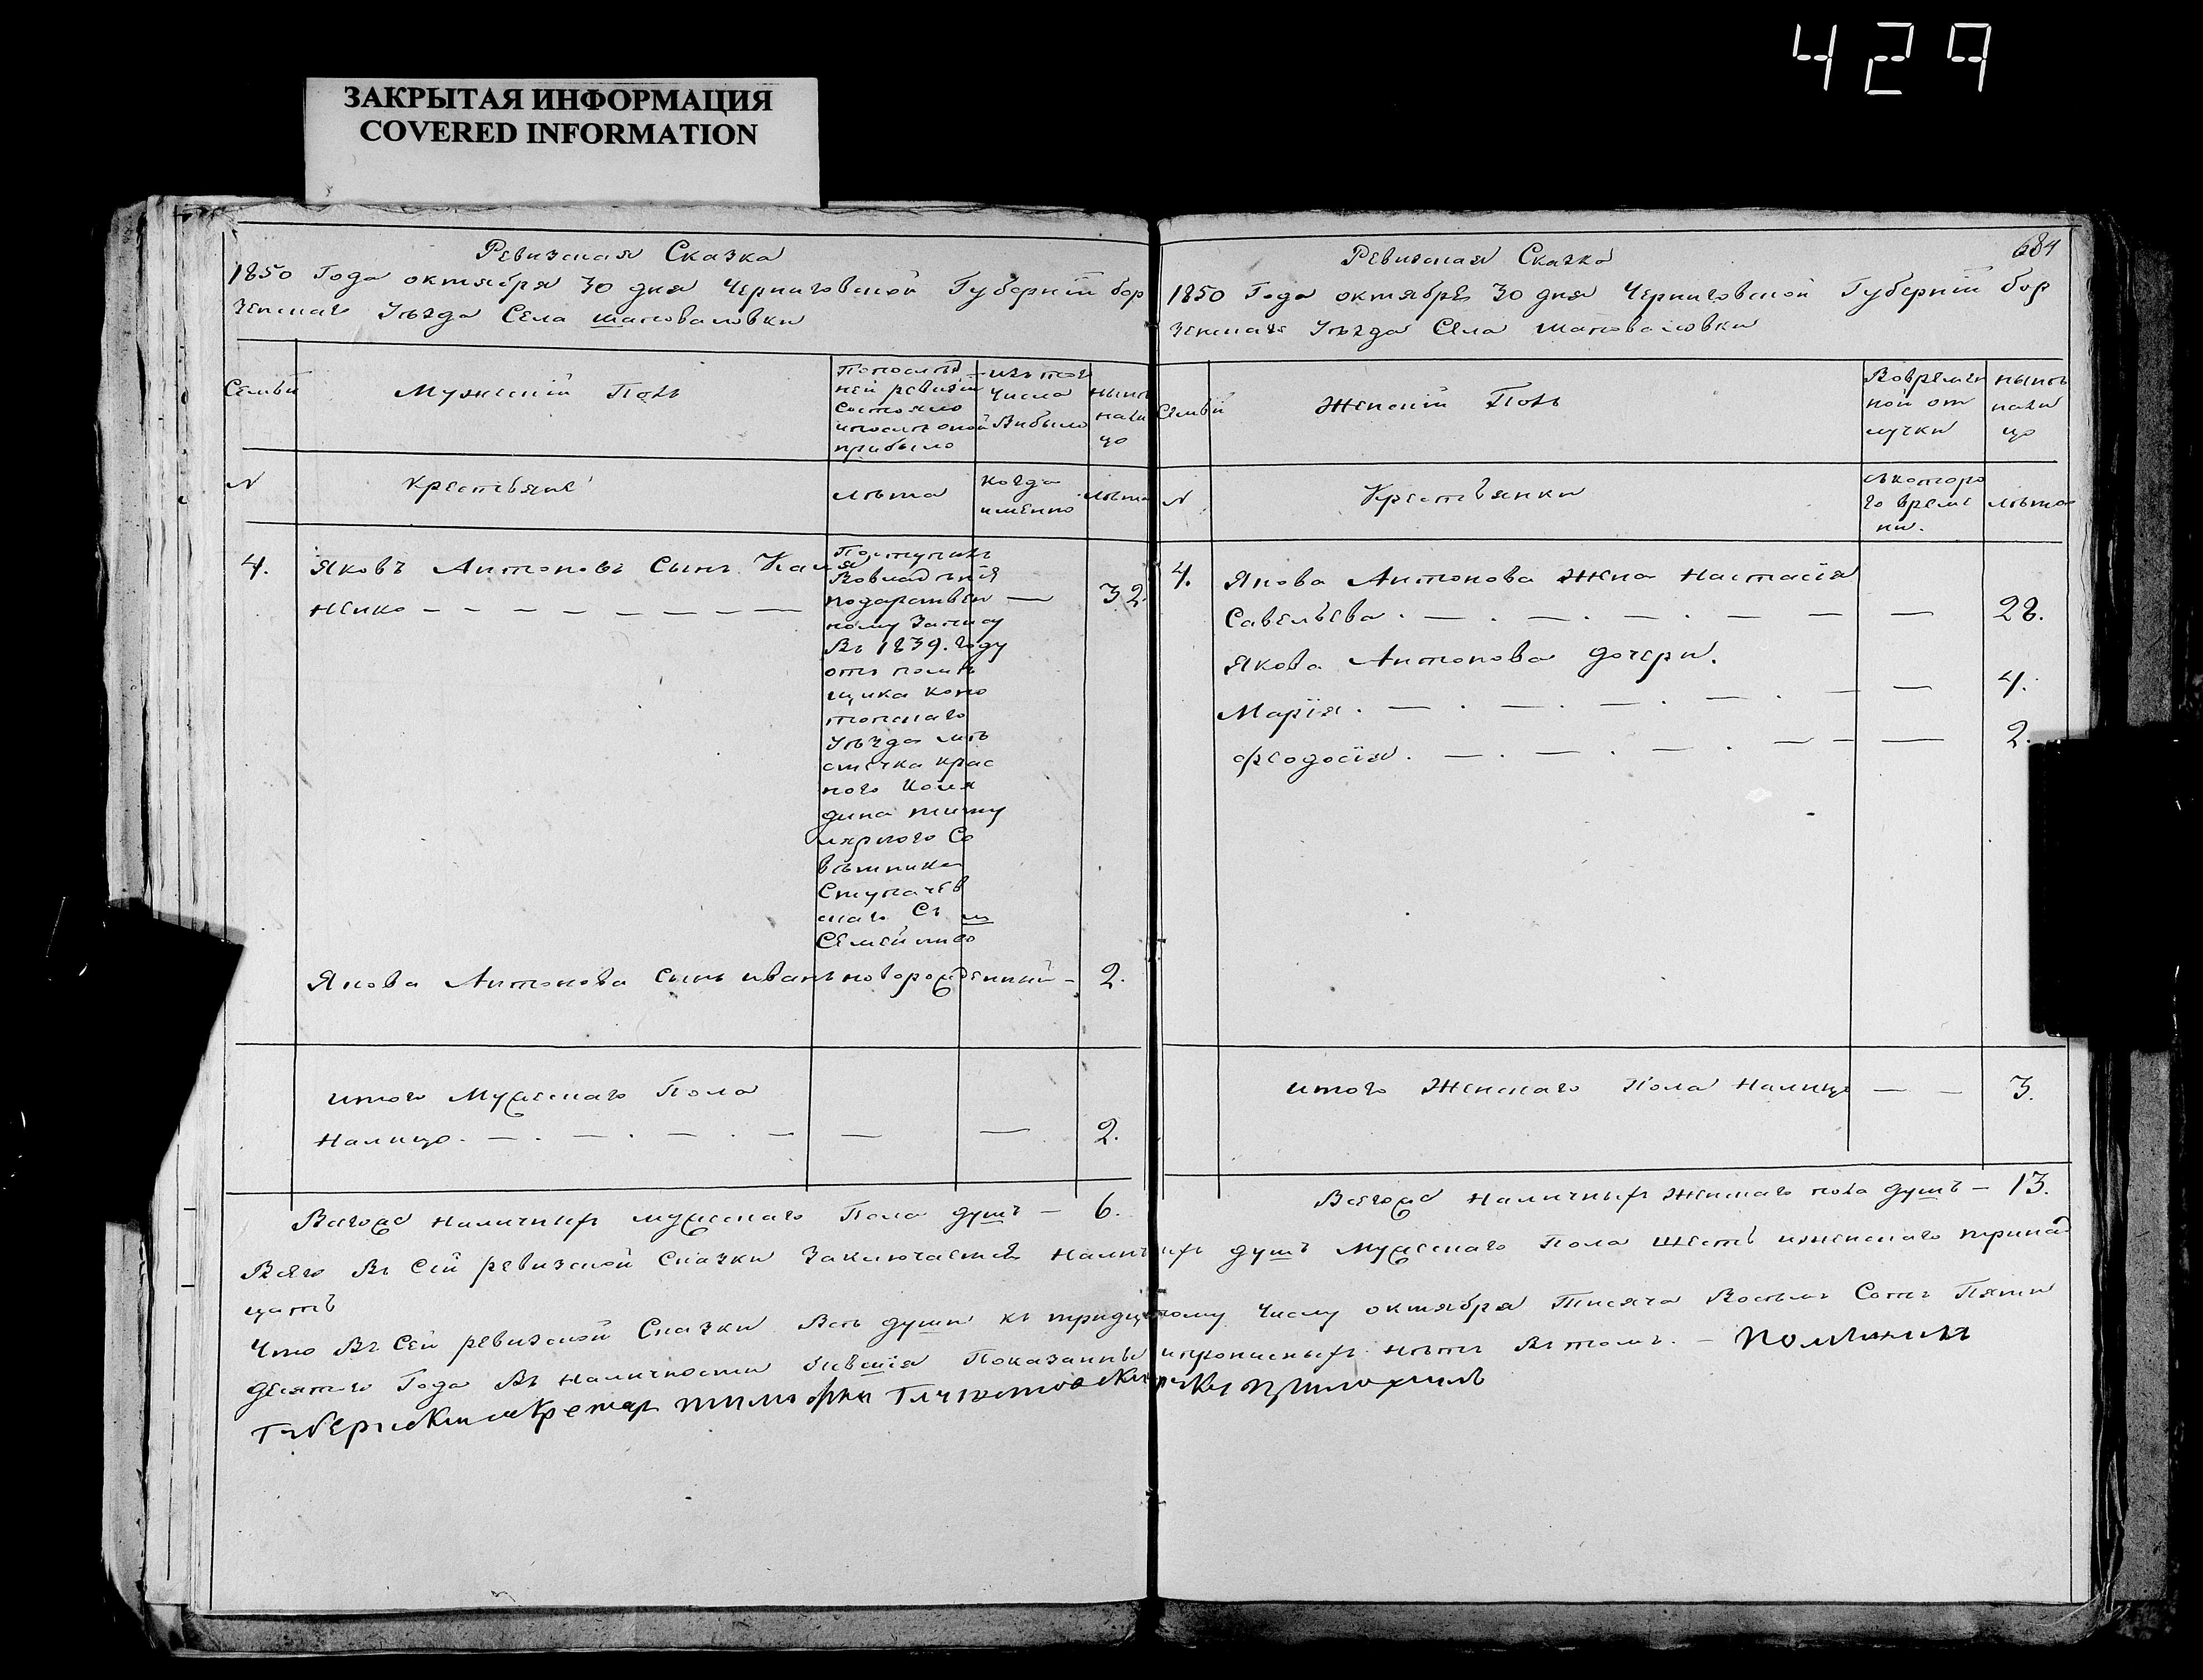 429
ЗАКРЫТАЯ ИНФОРМАЦИЯ
COVERED INFORMATION
Ревизская Сказка
1850 Года октября 30 дня Черниговской Губернiи бор
зенскаго Уѣзда Села шаповаловки
Семьи
Мужескiй Полъ
Попослѣд
ней ревизiи
состояло
ипослѣ оной
прибыло
изъ того
числа
Выбыло
нынѣ
нали
цо
N
Крестьяне
лѣта
когда
именно
лѣта
4.
Яковъ Антоновъ Сынъ Каля
ненко
32.
Поступилъ
Вовладѣнiя
подарствен
ному запису
Въ 1839. году
отъ помѣ
щика коно
топскаго
Уѣзда мѣ
стечка крас
ного Коля
дина титу
лярного Со
вѣтника
Ступачев
скаго Съ
Семейство
Якова Антонова сынъ иванъ новорожденный - 2.
итого Мужескаго Пола
Налицо. 2.
Всегоже наличныхъ мужескаго Пола душъ - 6.
684
Ревизская Сказка
1850 Года октября 30 дня Черниговской Губернiи бор
зенскаго Уѣзда Села шаповаловки
Семьи
Женскiй Полъ
Вовремен
ной от
лучки
нынѣ
нали
цо
N
Крестьянки
съкотора
го време
ни.
лѣта
4.
Якова Антонова Жена Настасiя
Савельева. 28.
Якова Антонова дочери.
Марiя. 4.
феодосiя. 2.
итого Женскаго Пола Налицо 3.
Всегоже наличныхъ женскаго пола душъ - 13.
Всего Въ Сей ревизской Сказки Заключается Наличныхъ душъ Мужескаго Пола шесть иженскаго тринад
цать
Что Въ Сей ревизской Сказки Всѣ души къ тридцатому Числу октября Тисяча Восемь Сотъ Пяти
десятого Года Въ Наличности бывшiя Показанны ипрописныхъ нѣтъ Втомъ. -